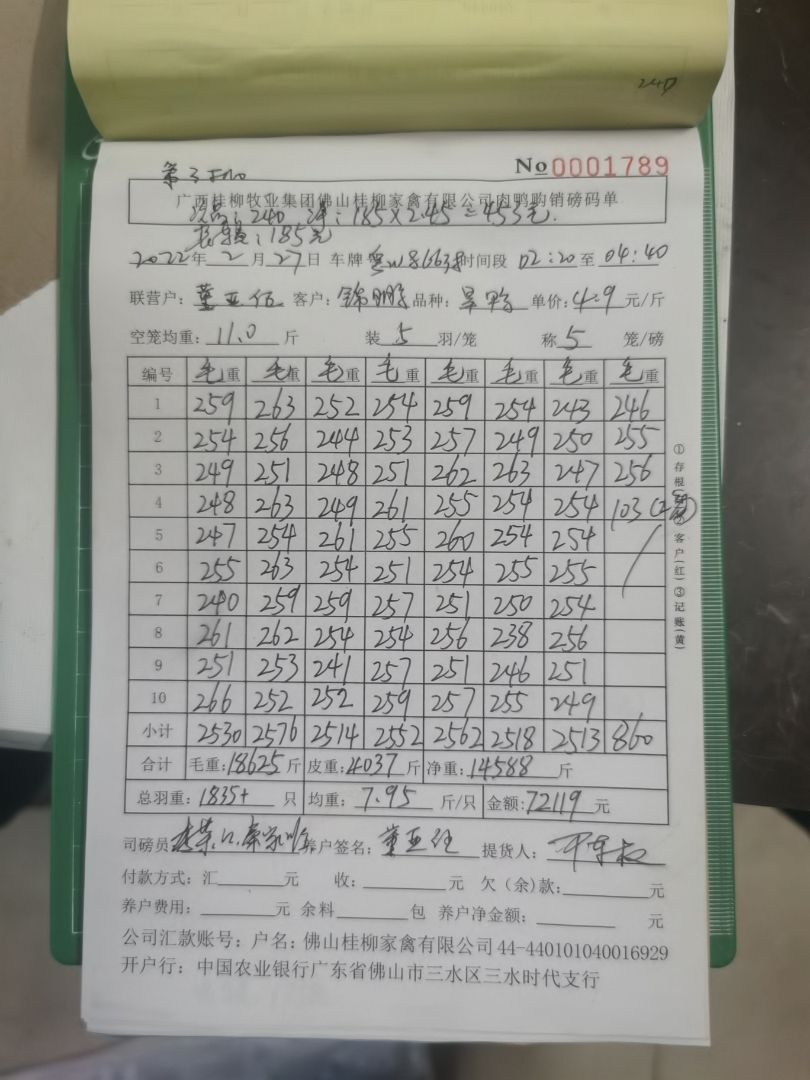 240
No 0001789
广西桂柳牧业集团佛山桂柳家禽有限公司肉鸭购销磅码单
次品：240 净：185×2.45=453元.
185元
2022年2月27日 车牌 时间段 02:20至04:40
联营户： 客户：锦鹏 品种： 单价：4.9元/斤
空笼均重：11.0斤 装5羽/笼 称5笼/磅
编号 毛重 毛重 毛重 毛重 毛重 毛重 毛重 毛重
1 259 263 252 254 259 254 243 246
2 254 256 244 253 257 249 250 255
3 249 251 248 251 262 263 247 256
4 248 263 249 261 255 254 254 103
5 247 254 261 255 260 254 254
6 255 263 254 251 254 255 255
7 240 259 259 257 251 250 254
8 261 262 254 254 256 238 256
9 251 253 241 257 251 246 251
10 266 252 252 259 257 255 249
小计 2530 2576 2514 2552 2562 2518 2513 860
合计 毛重：18625斤 皮重：4037斤 净重：14588斤
总羽重：1835+只 均重：7.95斤/只 金额：72119元
司磅员 养户签名： 提货人：
付款方式：汇 元 收： 元 欠（余）款： 元
养户费用： 元 余料 包 养户净金额： 元
公司汇款账号：户名：佛山桂柳家禽有限公司44-440101040016929
开户行：中国农业银行广东省佛山市三水区三水时代支行
①存根 ②客户(红)③记账(黄)